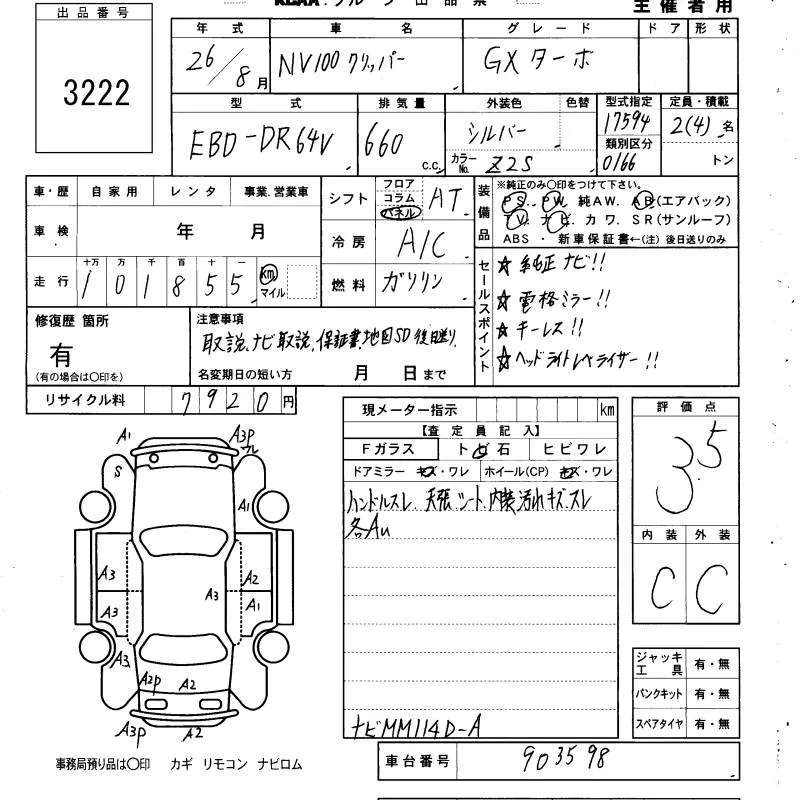 主催者用
出品番号
3222
年式 車名 グレード ドア 形状
26/8月 NV100クリッパー GXターボ
型式 排気量 外装色 色替 型式指定 定員・積載
EBD-DR64V 660 c.c. シルバー 17594 2(4)名
カラーNo. Z2S 類別区分 0166 トン
車・歴 自家用 レンタ 事業.営業車
車検 年 月
走行 十万 万 千 百 十 一
101855 km マイル
シフト フロア コラム パネル AT
冷房 A/C
燃料 ガソリン
装備品
※純正のみ〇印をつけて下さい。
PS. PW. 純AW. AB(エアバック)
TV. ナビ. カワ. SR(サンルーフ)
ABS ・ 新車保証書←(注) 後日送りのみ
セールスポイント
☆純正ナビ!!
☆電格ミラー!!
☆キーレス!!
☆ヘッドライトレベライザー!!
修復歴 箇所
有
(有の場合は〇印を)
注意事項
取説、ナビ取説、保証書、地図SD後日送り
名変期日の短い方 月 日まで
リサイクル料 7920円
現メーター指示 km
【査定員記入】
Fガラス トビ石 ヒビワレ
ドアミラー キズ・ワレ ホイール(CP) キズ・ワレ
ハンドルスレ. 天張. シート. 内装汚れキズ.スレ
各AU
ナビMM114D-A
評価点
3.5
内装 外装
C C
ジャッキ工具 有・無
パンクキット 有・無
スペアタイヤ 有・無
車台番号 903598
A1 A3P
S A1
A3 A2
A3 A3 A1
A3 A2P A2
A3P A2
事務局預り品は〇印 カギ リモコン ナビロム